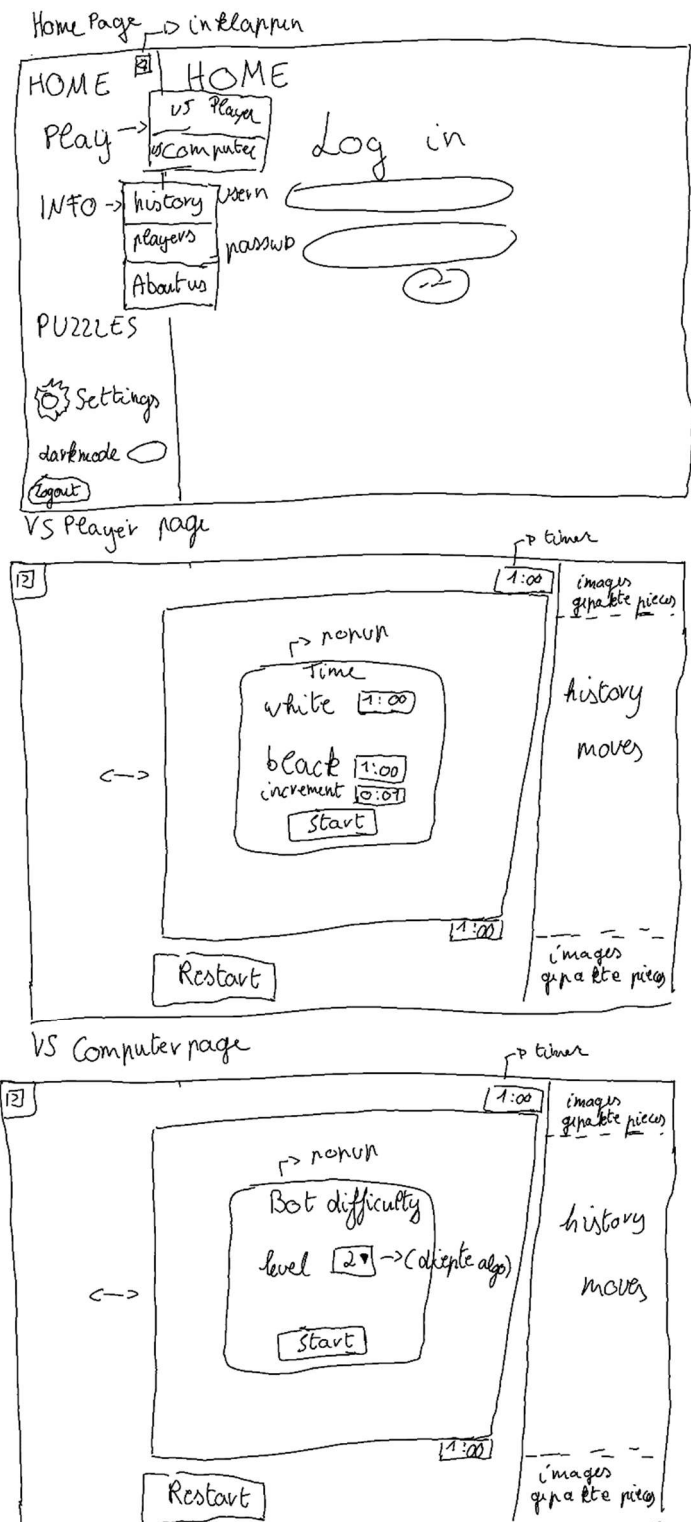 Home Page → inklappen
HOME
HOME
Play →
vs Player
vs Computer
Log in
INFO →
history
players
About us
usern
passwd
PUZZLES
Settings
darkmode
Logout
VS Player page
timer
1:00
images
gepakte pieces
popup
Time
white 1:00
black 1:00
increment 0:01
Start
<-->
history
moves
1:00
Restart
images
gepakte pieces
VS Computer page
timer
1:00
images
gepakte pieces
popup
Bot difficulty
level 2 → (diepte algo)
Start
<-->
history
moves
1:00
Restart
images
gepakte pieces